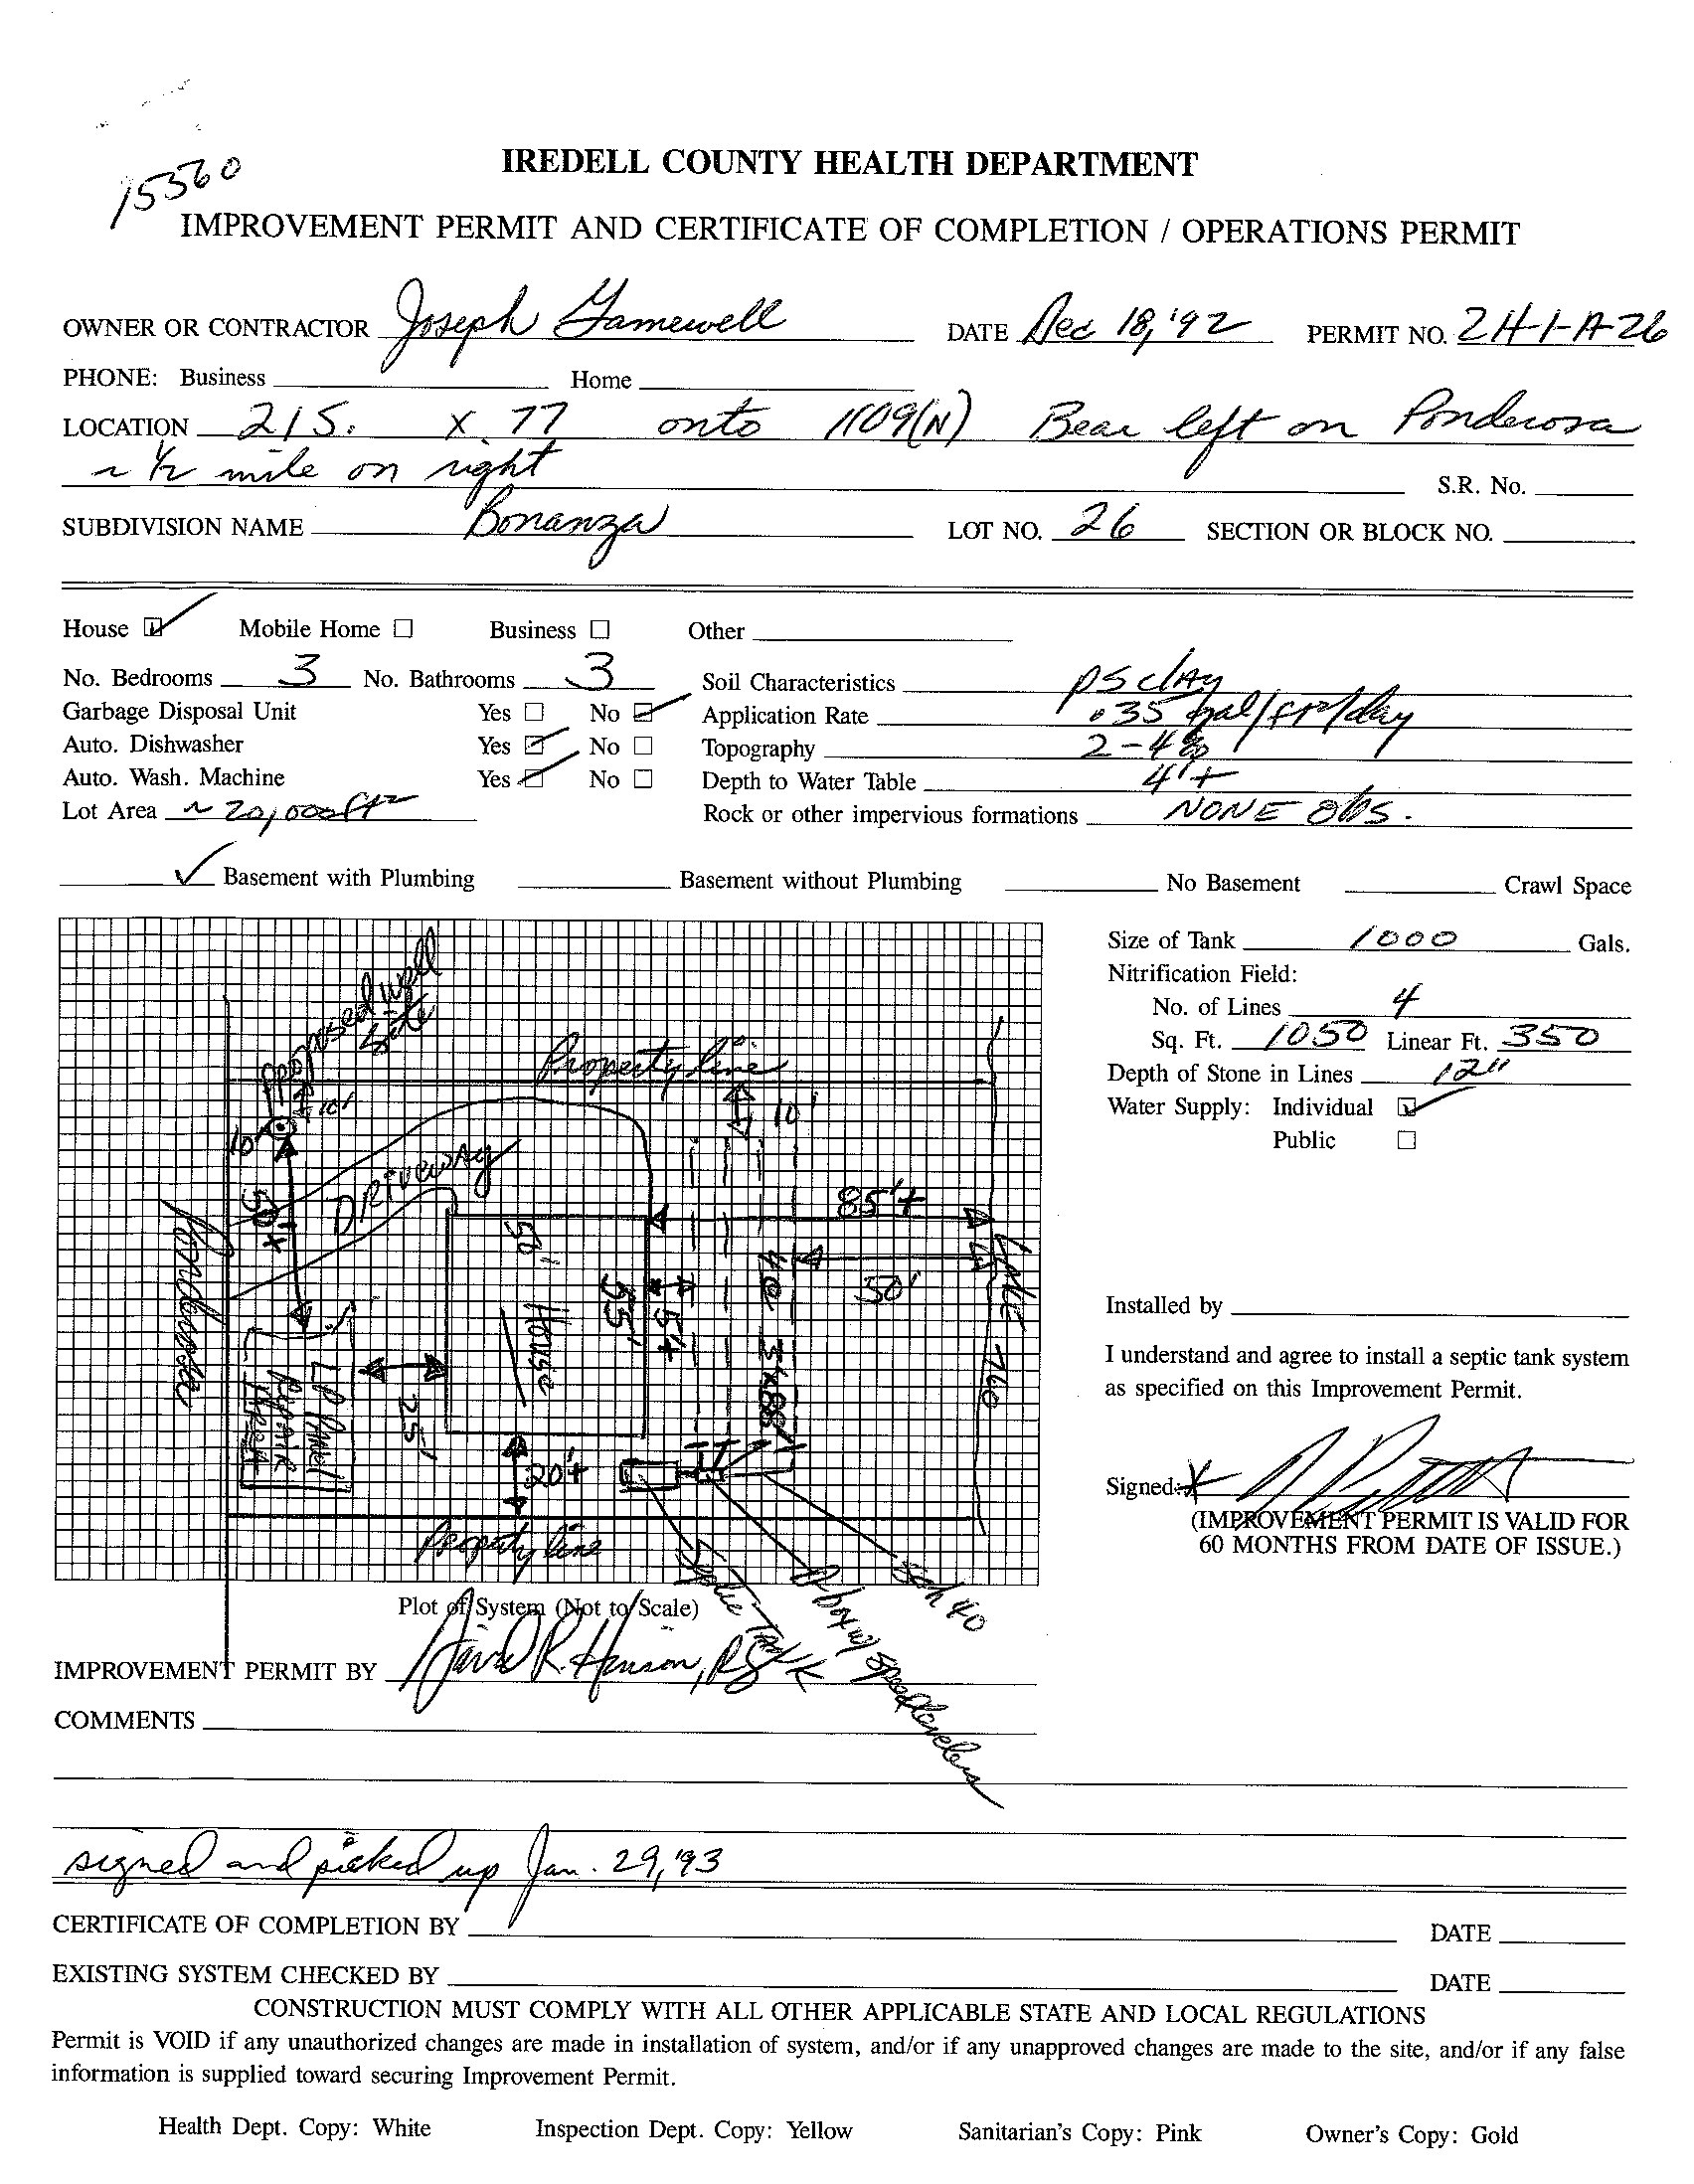 15360
IREDELL COUNTY HEALTH DEPARTMENT
IMPROVEMENT PERMIT AND CERTIFICATE OF COMPLETION / OPERATIONS PERMIT
OWNER OR CONTRACTOR Joseph Gamewell DATE Dec 18, '92 PERMIT NO. 2H-1-A-26
PHONE: Business Home
LOCATION 21 S. X. 77 onto 1109(N) Bear left on Ponderosa
~ 1/2 mile on right S.R. No.
SUBDIVISION NAME Bonanza LOT NO. 26 SECTION OR BLOCK NO.
House ☑ Mobile Home ☐ Business ☐ Other
No. Bedrooms 3 No. Bathrooms 3 Soil Characteristics PS clay
Garbage Disposal Unit Yes ☐ No ☑ Application Rate .35 gal/ft²/day
Auto. Dishwasher Yes ☑ No ☐ Topography 2-4%
Auto. Wash. Machine Yes ☑ No ☐ Depth to Water Table 4'+
Lot Area ~ 20,000 ft² Rock or other impervious formations NONE OBS.
✓ Basement with Plumbing Basement without Plumbing No Basement Crawl Space
Size of Tank 1000 Gals.
Nitrification Field:
No. of Lines 4
Sq. Ft. 1050 Linear Ft. 350
Depth of Stone in Lines 12"
Water Supply: Individual ☑
Public ☐
Installed by
I understand and agree to install a septic tank system
as specified on this Improvement Permit.
Signed: X
(IMPROVEMENT PERMIT IS VALID FOR
60 MONTHS FROM DATE OF ISSUE.)
Proposed well
site
Property line
10'
10'
10'
Driveway
50'+
85'+
50'
50'
House
55'
5'+
4 @ 3'x88'
Lake
760
Ponderosa
LP Panel
Repair
Area
25'
20'+
Property line
Septic Tank
D-box w/ speedlevelers
Sch 40
Plot of System (Not to Scale)
IMPROVEMENT PERMIT BY David R. Hinson, RS
COMMENTS
signed and picked up Jan. 29, '93
CERTIFICATE OF COMPLETION BY DATE
EXISTING SYSTEM CHECKED BY DATE
CONSTRUCTION MUST COMPLY WITH ALL OTHER APPLICABLE STATE AND LOCAL REGULATIONS
Permit is VOID if any unauthorized changes are made in installation of system, and/or if any unapproved changes are made to the site, and/or if any false
information is supplied toward securing Improvement Permit.
Health Dept. Copy: White Inspection Dept. Copy: Yellow Sanitarian's Copy: Pink Owner's Copy: Gold